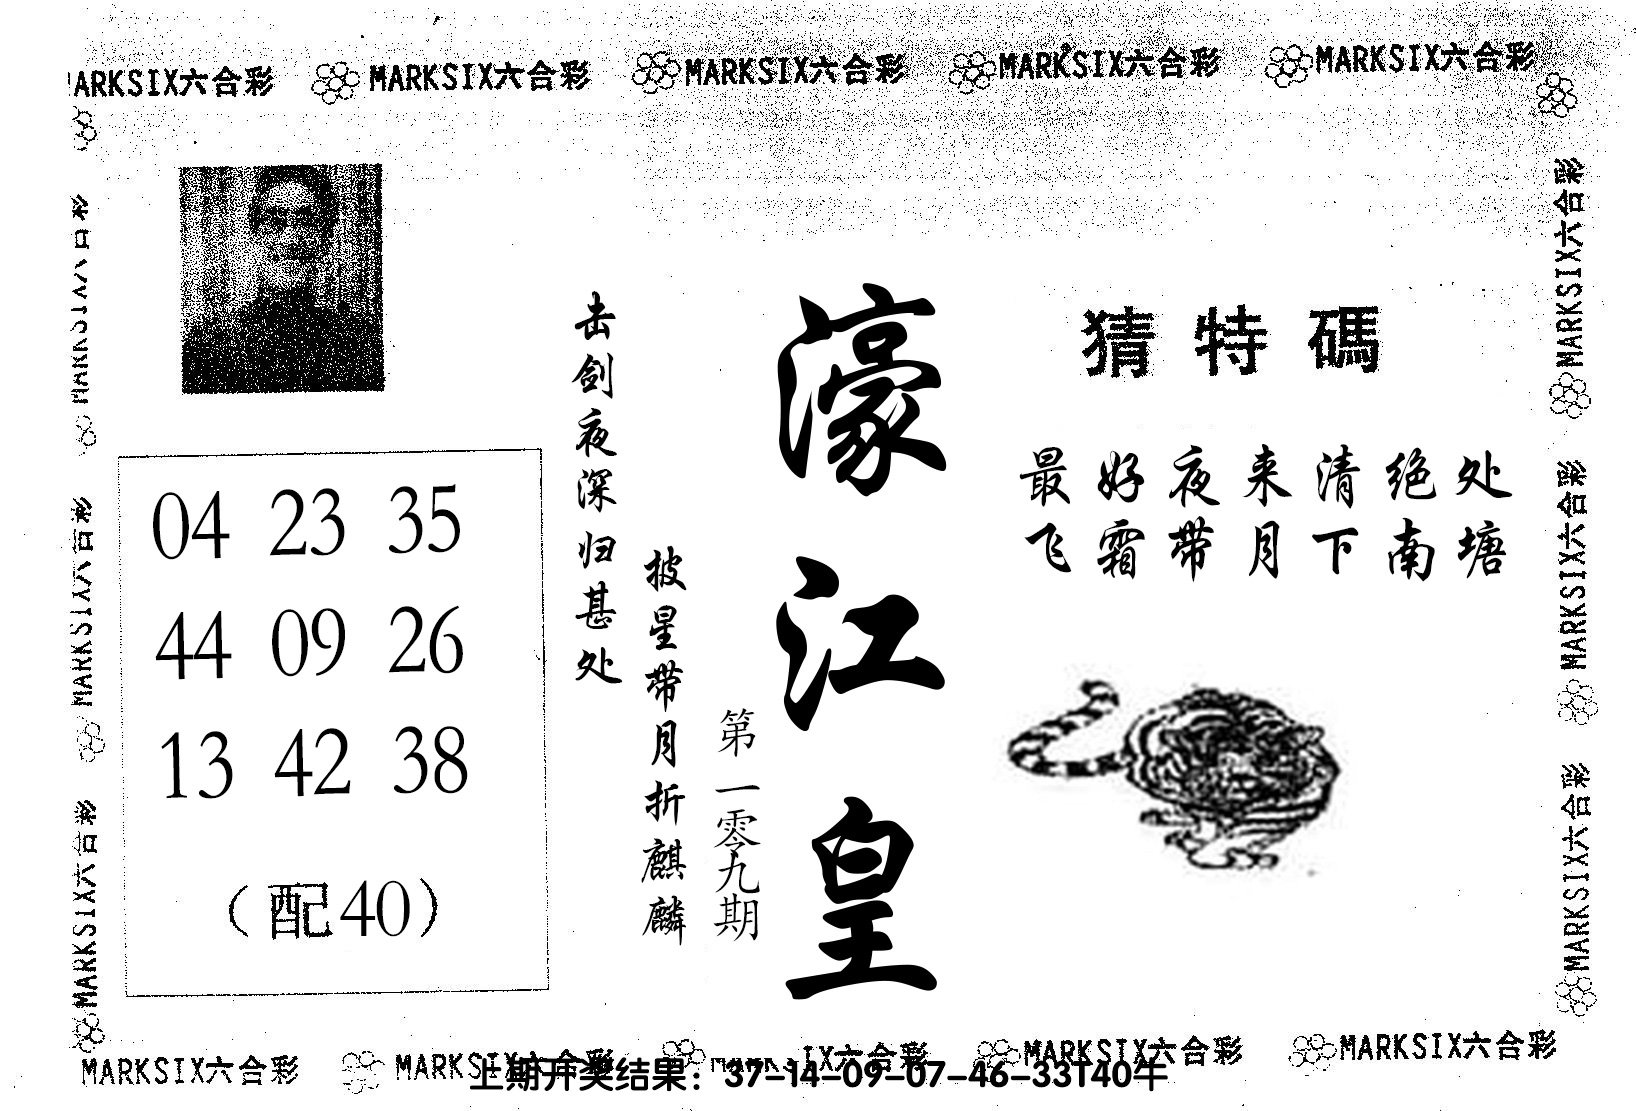 MARKSIX六合彩 MARKSIX六合彩 MARKSIX六合彩 MARKSIX六合彩
猜特碼
最好夜来清绝处
飞霜带月下南塘
濠江皇
第一零九期
击剑夜深归甚处
披星带月折麒麟
04 23 35
44 09 26
13 42 38
（配40）
MARKSIX六合彩
MARKSIX六合彩
MARKSIX六合彩
MARKSIX六合彩
MARKSIX六合彩
MARKSIX六合彩 MARKSIX六合彩 MARKSIX六合彩 MARKSIX六合彩
上期开奖结果：37-14-09-07-46-33T40牛